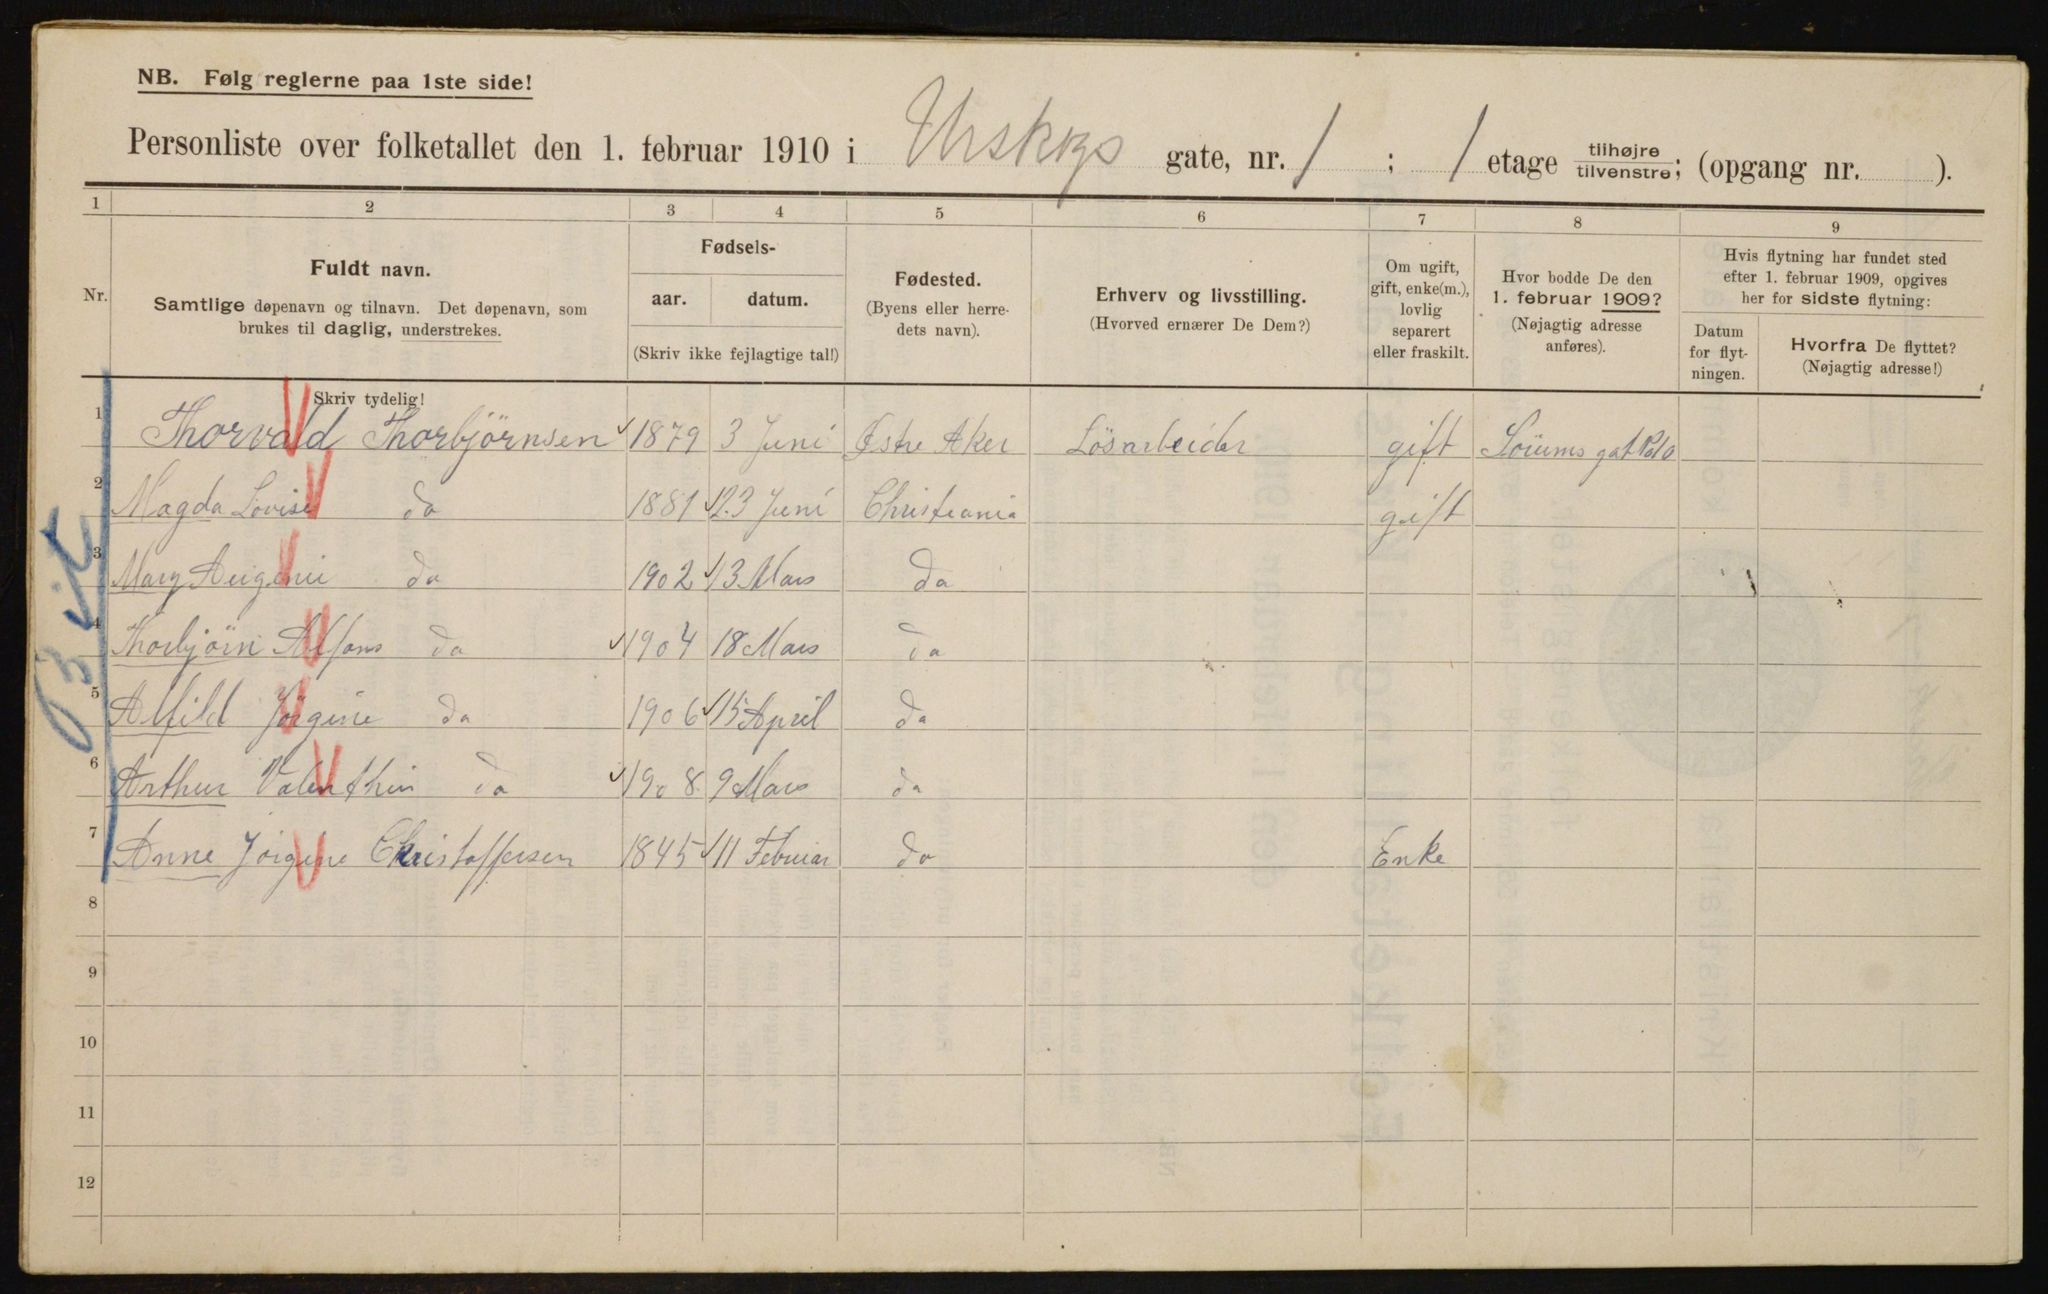 NB. Følg reglerne paa 1ste side!
Personliste over folketallet den 1. februar 1910 i Urskogs gate, nr. 1 ; 1 etage tilhøjre tilvenstre; (opgang nr. ).
1 2 3 4 5 6 7 8 9
Nr.
Fuldt navn.
Samtlige døpenavn og tilnavn. Det døpenavn, som
brukes til daglig, understrekes.
Skriv tydelig!
Fødsels-
aar. datum.
(Skriv ikke fejlagtige tal!)
Fødested.
(Byens eller herre-
dets navn).
Erhverv og livsstilling.
(Hvorved ernærer De Dem?)
Om ugift,
gift, enke(m.),
lovlig
separert
eller fraskilt.
Hvor bodde De den
1. februar 1909?
(Nøjagtig adresse
anføres).
Hvis flytning har fundet sted
efter 1. februar 1909, opgives
her for sidste flytning:
Datum
for flyt-
ningen.
Hvorfra De flyttet?
(Nøjagtig adresse!)
1 Thorvald Thorbjörnsen 1879 3 Juni Østre Aker Lösarbeider gift
2 Magda Lovise do 1881 23 Juni Christiania gift
3 Mary do 1902 13 Mars do
4 Thorbjörn Alfons do 1904 18 Mars do
5 Alfild Jörgine do 1906 15 April do
6 Arthur Valenthin do 1908 9 Mars do
7 Anne Jörgine Christoffersen 1845 11 Februar do Enke
8
9
10
11
12